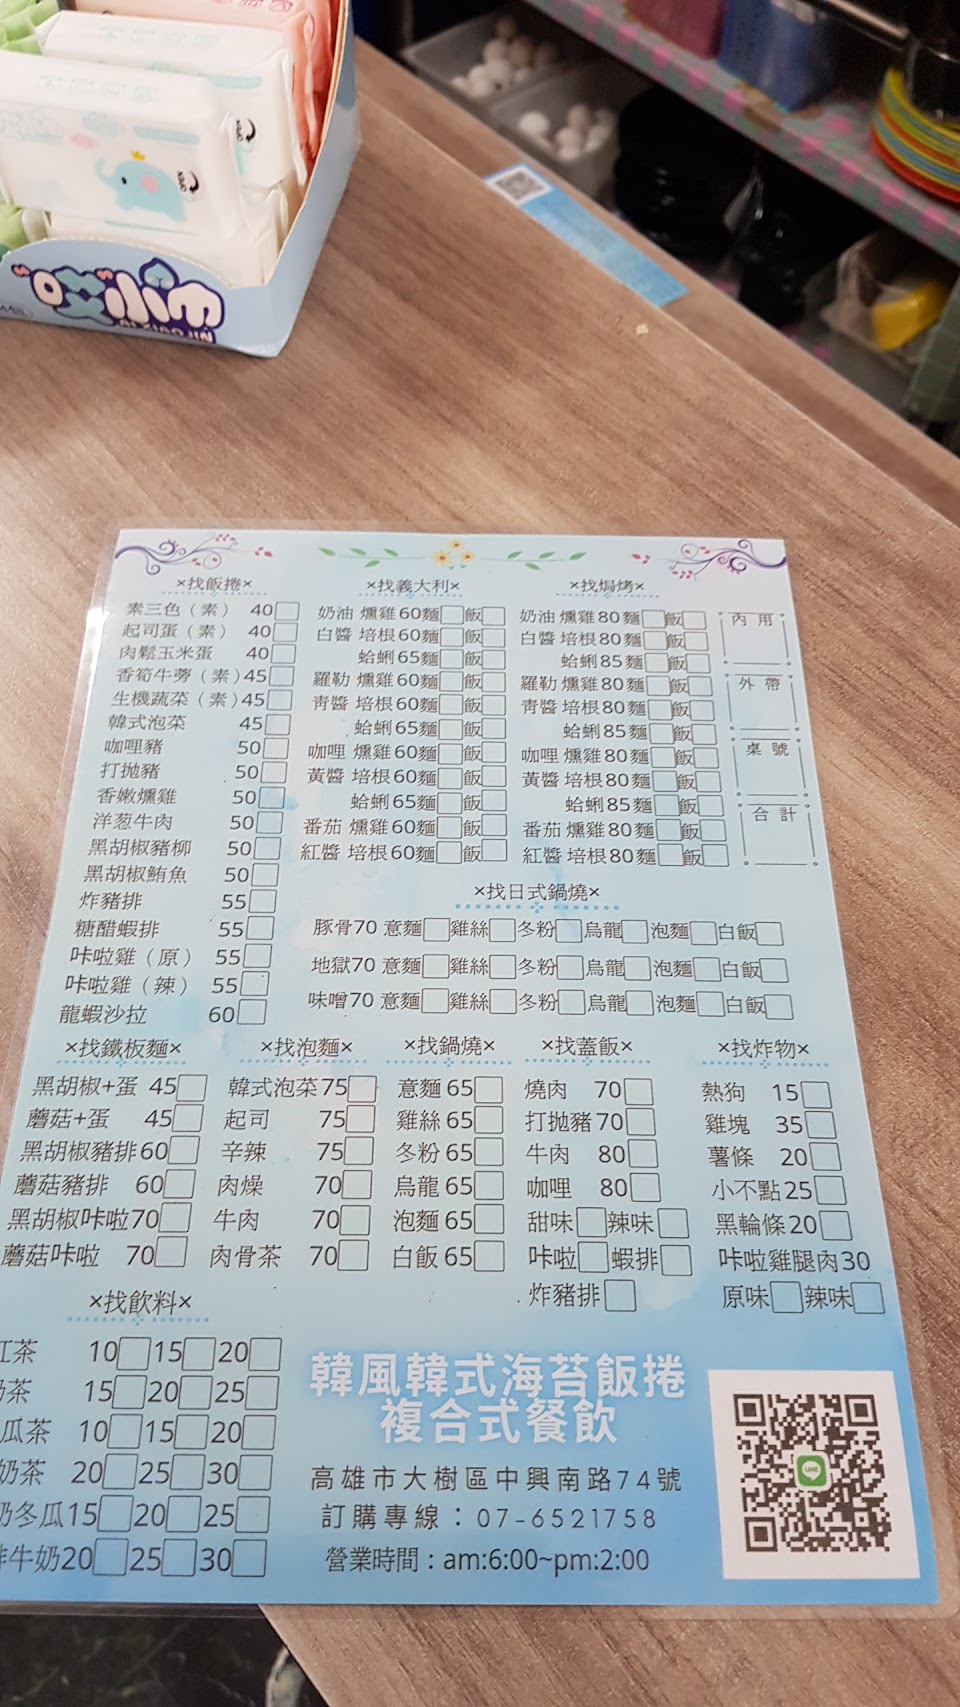 "哎"小巾
AI XIAO JIN
×找飯捲×
素三色（素） 40
起司蛋（素） 40
肉鬆玉米蛋 40
香筍牛蒡（素）45
生機蔬菜（素）45
韓式泡菜 45
咖哩豬 50
打拋豬 50
香嫩燻雞 50
洋葱牛肉 50
黑胡椒豬柳 50
黑胡椒鮪魚 50
炸豬排 55
糖醋蝦排 55
咔啦雞（原） 55
咔啦雞（辣） 55
龍蝦沙拉 60
×找義大利×
奶油 燻雞60麵 飯
白醬 培根60麵 飯
蛤蜊65麵 飯
羅勒 燻雞60麵 飯
青醬 培根60麵 飯
蛤蜊65麵 飯
咖哩 燻雞60麵 飯
黃醬 培根60麵 飯
蛤蜊65麵 飯
番茄 燻雞60麵 飯
紅醬 培根60麵 飯
×找焗烤×
奶油 燻雞80麵 飯
白醬 培根80麵 飯
蛤蜊85麵 飯
羅勒 燻雞80麵 飯
青醬 培根80麵 飯
蛤蜊85麵 飯
咖哩 燻雞80麵 飯
黃醬 培根80麵 飯
蛤蜊85麵 飯
番茄 燻雞80麵 飯
紅醬 培根80麵 飯
內用
外帶
桌號
合計
×找日式鍋燒×
豚骨70 意麵 雞絲 冬粉 烏龍 泡麵 白飯
地獄70 意麵 雞絲 冬粉 烏龍 泡麵 白飯
味噌70 意麵 雞絲 冬粉 烏龍 泡麵 白飯
×找鐵板麵×
黑胡椒+蛋 45
蘑菇+蛋 45
黑胡椒豬排60
蘑菇豬排 60
黑胡椒咔啦70
蘑菇咔啦 70
×找泡麵×
韓式泡菜75
起司 75
辛辣 75
肉燥 70
牛肉 70
肉骨茶 70
×找鍋燒×
意麵65
雞絲65
冬粉65
烏龍65
泡麵65
白飯65
×找蓋飯×
燒肉 70
打拋豬70
牛肉 80
咖哩 80
甜味 辣味
咔啦 蝦排
炸豬排
×找炸物×
熱狗 15
雞塊 35
薯條 20
小不點25
黑輪條20
咔啦雞腿肉30
原味 辣味
×找飲料×
紅茶 10 15 20
奶茶 15 20 25
瓜茶 10 15 20
奶茶 20 25 30
奶冬瓜15 20 25
牛奶20 25 30
韓風韓式海苔飯捲
複合式餐飲
高雄市大樹區中興南路74號
訂購專線：07-6521758
營業時間：am:6:00~pm:2:00
LINE